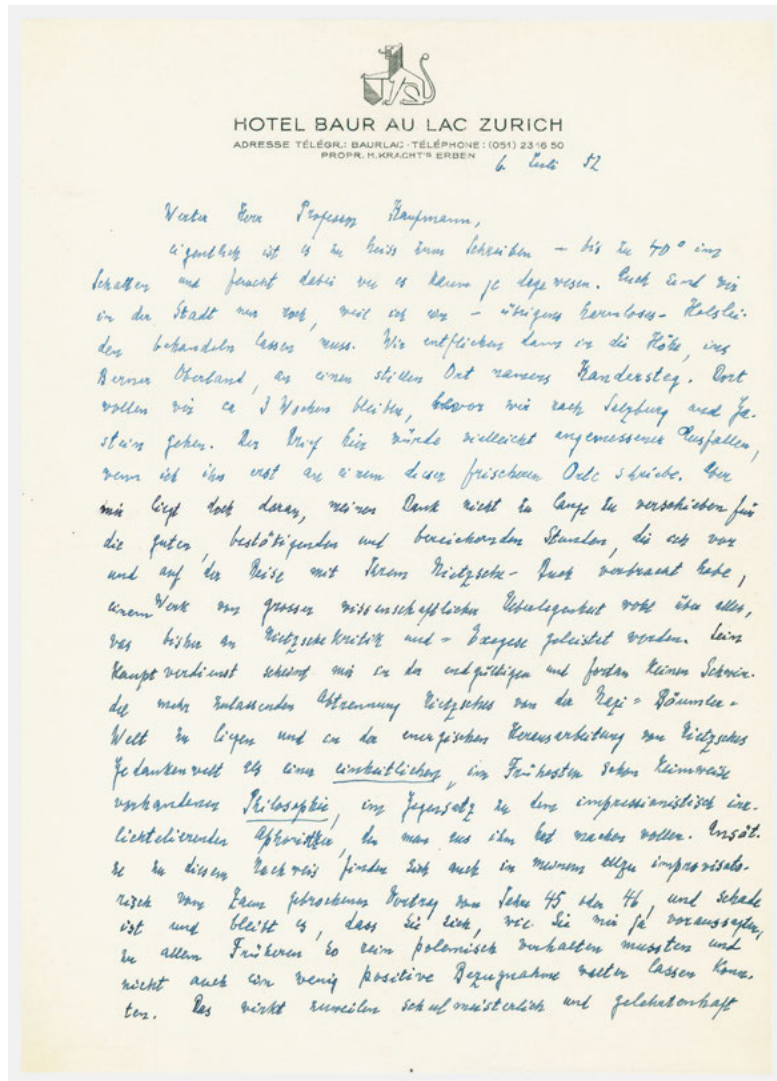 HOTEL BAUR AU LAC ZURICH
ADRESSE TÉLÉGR.: BAURLAC · TÉLÉPHONE: (051) 23 16 50
PROPR. H. KRACHT'S ERBEN
6. Juli 52
Werter Herr Professor Kaufmann,
eigentlich ist es zu heiss zum Schreiben – bis zu 40° im
Schatten und feucht dabei wie es kaum je dagewesen. Auch sind wir
in der Stadt nur noch, weil ich ein – übrigens harmloses – Halslei-
den behandeln lassen muss. Wir entfliehen dann in die Höhe, ins
Berner Oberland, an einen stillen Ort namens Kandersteg. Dort
wollen wir ca 3 Wochen bleiben, bevor wir nach Salzburg und Ga-
stein gehen. Der Brief hier würde vielleicht angemessener ausfallen,
wenn ich ihn erst an einem dieser frischeren Orte schriebe. Aber
mir liegt doch daran, meinen Dank nicht zu lange zu verschieben für
die guten, bestätigenden und bereichernden Stunden, die ich vor
und auf der Reise mit Ihrem Nietzsche-Buch verbracht habe,
einem Werk von grosser wissenschaftlicher Ueberlegenheit wohl über alles,
was bisher an Nietzsche Kritik und -Exegese geleistet worden. Sein
Hauptverdienst scheint mir in der endgültigen und fortan keinen Schwin-
del mehr zulassenden Abtrennung Nietzsches von der Nazi-Bäumler-
Welt zu liegen und in der energischen Herausarbeitung von Nietzsches
Gedankenwelt als einer einheitlichen, im Frühesten schon keimweise
vorhandenen Philosophie, im Gegensatz zu dem impressionistisch irr-
lichtelierenden Aphoristiker, den man aus ihm hat machen wollen. Ansät-
ze zu diesem Nachweis finden sich auch in meinem allzu improvisato-
risch vom Zaun gebrochenen Vortrag vom Jahre 45 oder 46, und schade
ist und bleibt es, dass Sie sich, wie Sie mir ja voraussagten,
zu allem Früheren so rein polemisch verhalten mussten und
nicht auch ein wenig positive Bezugnahme walten lassen konn-
ten. Das wirkt zuweilen schulmeisterlich und gelehrtenhaft